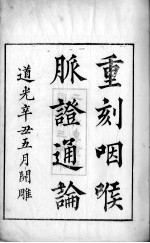 重刻咽喉
脈證通論
道光辛丑五月開雕